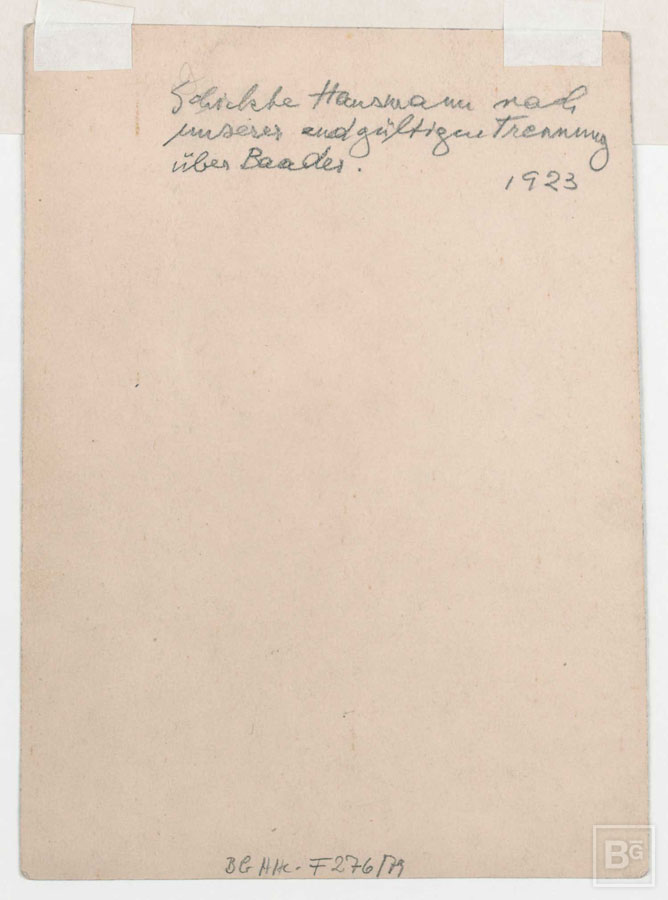 Schickte Hausmann nach
unserer endgültigen Trennung
über Baader.
1923
BG HHC-F 276/79
BG